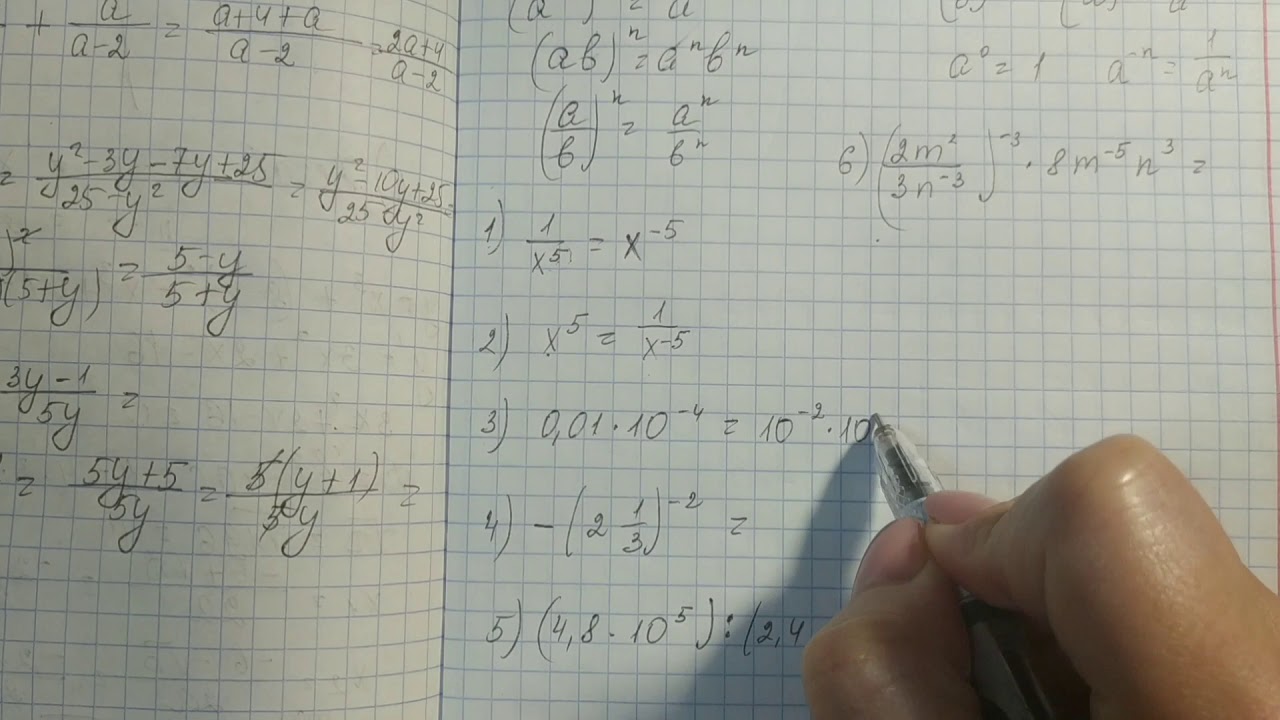 + a/(a-2) = (a+4+a)/(a-2) = (2a+4)/(a-2)
= (y²-3y-7y+25)/(25-y²) = (y²-10y+25)/(25-y²) =
(5+y) = (5-y)/(5+y)
(3y-1)/5y =
= (5y+5)/5y = 5(y+1)/5y =
(ab)ⁿ = aⁿbⁿ
(a/b)ⁿ = aⁿ/bⁿ
1) 1/x⁵ = x⁻⁵
2) x⁵ = 1/x⁻⁵
3) 0,01·10⁻⁴ = 10⁻²·10
4) -(2 1/3)⁻² =
5) (4,8·10⁵):(2,4
a⁰ = 1 a⁻ⁿ = 1/aⁿ
6) (2m²/3n⁻³)⁻³ · 8m⁻⁵n³ =